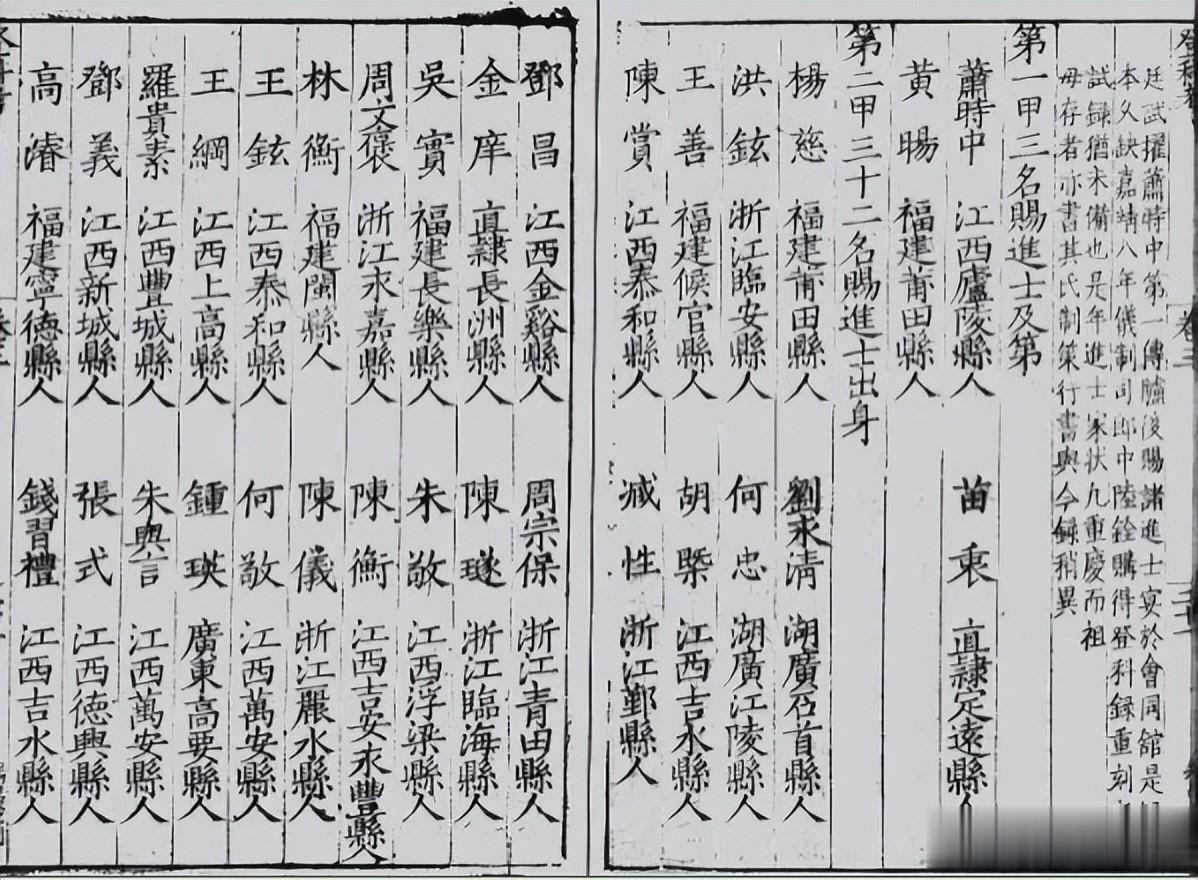 登科考 卷三
廷試擢蕭時中第一傳臚後賜諸進士宴於會同館是
本久缺嘉靖八年儀制司郎中陸銓購得登科録重刻
試録猶未備也是年進士家状凡重慶而祖
母存者亦書其氏制策行書與今録稍異
第一甲三名賜進士及第
蕭時中 江西廬陵縣人 苗衷 直隷定遠縣人
黃暘 福建莆田縣人
第二甲三十二名賜進士出身
楊慈 福建莆田縣人 劉永清 湖廣石首縣人
洪鉉 浙江臨安縣人 何忠 湖廣江陵縣人
王善 福建候官縣人 胡槩 江西吉水縣人
陳賞 江西泰和縣人 臧性 浙江鄞縣人
鄧昌 江西金谿縣人 周宗保 浙江青田縣人
金庠 直隷長洲縣人 陳璲 浙江臨海縣人
吳實 福建長樂縣人 朱敬 江西浮梁縣人
周文褒 浙江永嘉縣人 陳衡 江西吉安永豐縣人
林衡 福建閩縣人 陳儀 浙江麗水縣人
王鉉 江西泰和縣人 何敬 江西萬安縣人
王綱 江西上高縣人 鍾瑛 廣東高要縣人
羅貴素 江西豐城縣人 朱與言 江西萬安縣人
鄧義 江西新城縣人 張式 江西德興縣人
高濬 福建寧德縣人 錢習禮 江西吉水縣人